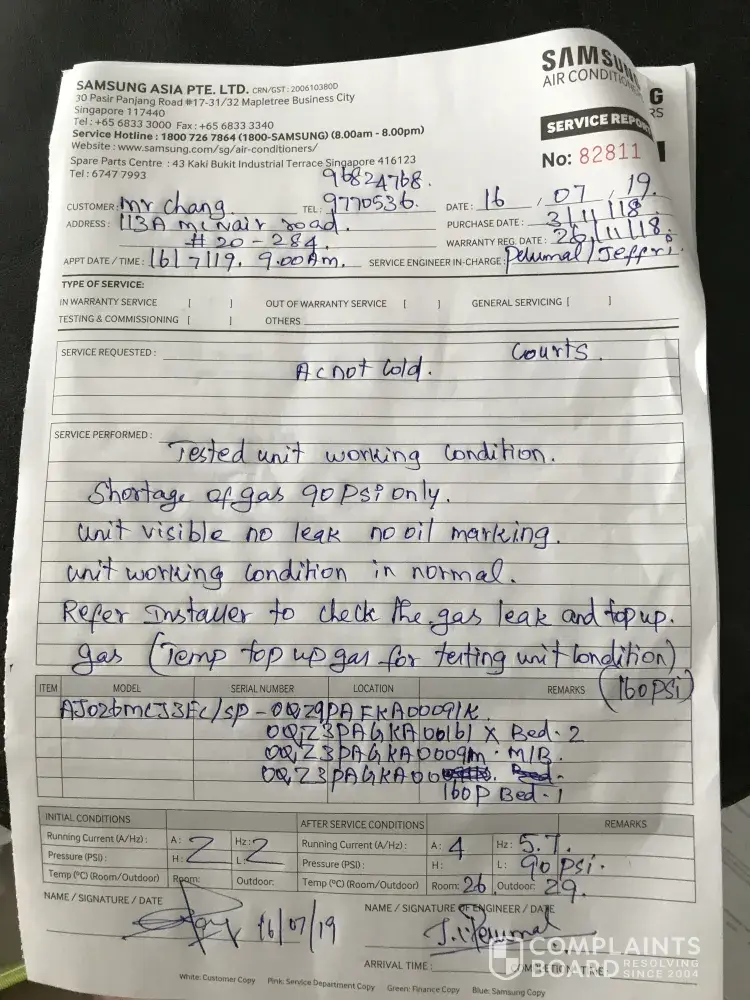 SAMSUNG ASIA PTE. LTD. CRN/GST : 200610380D
30 Pasir Panjang Road #17-31/32 Mapletree Business City
Singapore 117440
Tel : +65 6833 3000 Fax : +65 6833 3340
Service Hotline : 1800 726 7864 (1800-SAMSUNG) (8.00am - 8.00pm)
Website : www.samsung.com/sg/air-conditioners/
Spare Parts Centre : 43 Kaki Bukit Industrial Terrace Singapore 416123
Tel : 6747 7993
SAMSUNG
AIR CONDITIONERS
SERVICE REPORT
No: 82811
96824768.
CUSTOMER : Mr Chang. TEL : 9770536. DATE : 16 / 07 / 19.
ADDRESS : 113A McNair road. PURCHASE DATE : 3/11/18.
#20-284. WARRANTY REG. DATE : 26/11/18.
APPT DATE / TIME : 16/7/19. 9.00Am. SERVICE ENGINEER IN-CHARGE : Perumal / Jeffri.
TYPE OF SERVICE:
IN WARRANTY SERVICE [ ] OUT OF WARRANTY SERVICE [ ] GENERAL SERVICING [ ]
TESTING & COMMISSIONING [ ] OTHERS
SERVICE REQUESTED : Courts.
Ac not Cold.
SERVICE PERFORMED : Tested unit working Condition.
Shortage of gas 90 psi only.
unit visible no leak no oil marking.
unit working condition in normal.
Refer Installer to check the gas leak and top up.
gas (Temp top up gas for testing unit Condition)
(160 psi)
ITEM MODEL SERIAL NUMBER LOCATION REMARKS
Bed - 2
M/B.
Bed - 1
INITIAL CONDITIONS AFTER SERVICE CONDITIONS REMARKS
Running Current (A/Hz) : A: 2 Hz: 2 Running Current (A/Hz) : A: 4 Hz: 5.7.
Pressure (PSI) : H: L: Pressure (PSI) : H: L: 90 psi.
Temp (°C) (Room/Outdoor) Room: Outdoor: Temp (°C) (Room/Outdoor) Room: 26 Outdoor: 29.
NAME / SIGNATURE / DATE NAME / SIGNATURE OF ENGINEER / DATE
16/07/19
ARRIVAL TIME : COMPLETION TIME :
White: Customer Copy Pink: Service Department Copy Green: Finance Copy Blue: Samsung Copy
COMPLAINTS
BOARD RESOLVING
SINCE 2004